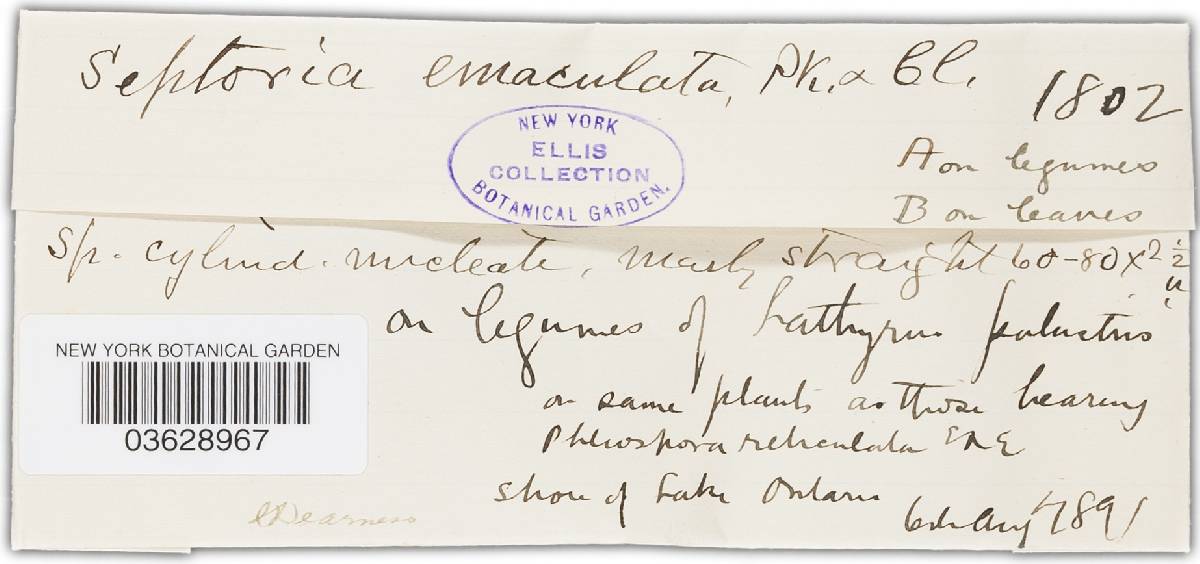 Septoria emaculata, Pk. & Cl.
1802
NEW YORK
ELLIS
COLLECTION
BOTANICAL GARDEN.
A on legumes
B on leaves
Sp. cylind. nucleate, mostly straight 60-80 x 2 ½ u
on legumes of Lathyrus palustris
NEW YORK BOTANICAL GARDEN
03628967
on same plants as those bearing
Phleospora reticulata E&E
shore of Lake Ontario
6th Aug 1891
JDearness